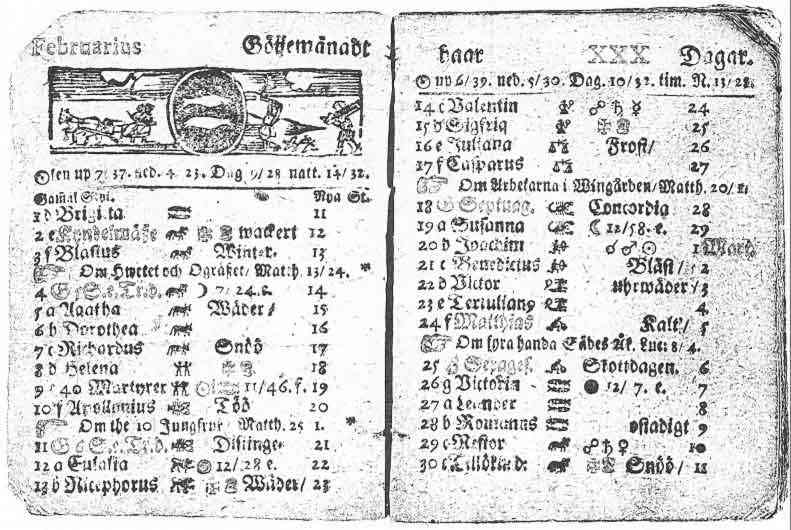 Februarius Göijemånadt
Solen up 7/37. ned. 4 23. Dag 9/28 natt. 14/32.
Gamal Styl. Nya St.
1 d Brigitta 11
2 e Kyndelmässe wackert 12
3 f Blasius Winter. 13
Om Hwetet och Ogräset/ Matth 13/24. *
4 G 5 S.e.Tr.d. 7/24.e. 14
5 a Agatha Wäder/ 15
6 b Dorothea 16
7 c Richardus Snöö 17
8 d Helena 18
9 e 40 Martyrer 11/46.f. 19
10 f Apollonius Töö 20
Om the 10 Jungfrur/ Matth. 25 1. *
11 G 6 S.e.Tr.d. Distinge 21
12 a Eulalia 12/28 e. 22
13 b Nicephorus Wäder/ 23
haar XXX Dagar.
up 6/39. ned. 5/30. Dag. 10/32. tim. N. 13/28.
14 c Valentin ☍ ♄ ☿ 24
15 d Sigfrid 25
16 e Juliana Frost/ 26
17 f Casparus 27
Om Arbetarna i Wingården/ Matth. 20/1.
18 G Septuag. Concordia 28
19 a Susanna ☾ 12/58. e. 29
20 b Joachim ☌ ♂ ☉ 1 Mart.
21 c Benedictus Bläst/ 2
22 d Victor uhrwäder/ 3
23 e Tertuliang 4
24 f Matthias Kalt/ 5
Om fyra handa Sädes Åk. Luc: 8/4.
25 G Sexages. Skottdagen. 6
26 g Victorin ● 12/7. e. 7
27 a Leander 8
28 b Romanus ostadigt 9
29 c Nestor ☍ ♄ ♀ 10
30 Snöö/ 11